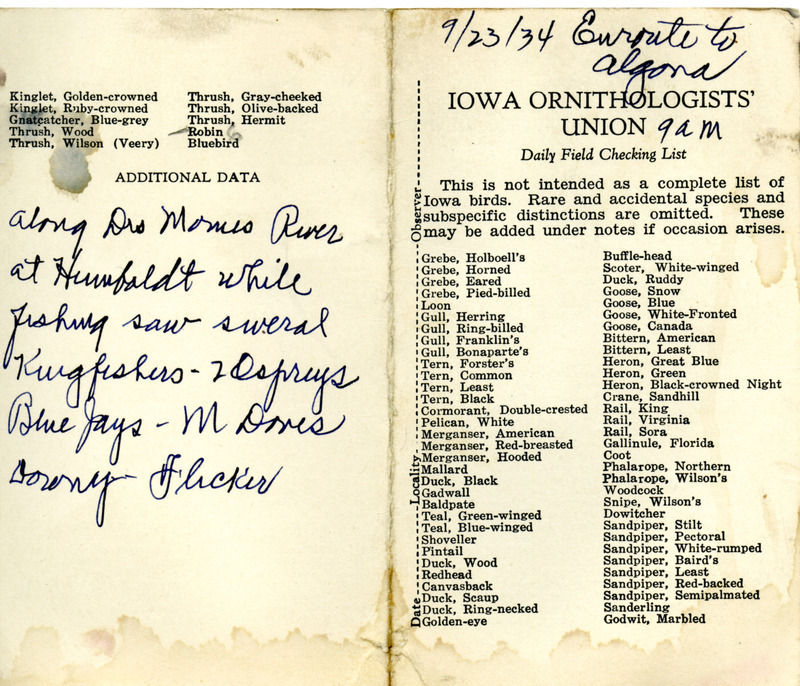 Kinglet, Golden-crowned
Kinglet, Ruby-crowned
Gnatcatcher, Blue-grey
Thrush, Wood
Thrush, Wilson (Veery)
Thrush, Gray-cheeked
Thrush, Olive-backed
Thrush, Hermit
Robin 6
Bluebird
ADDITIONAL DATA
along Des Moines River
at Humboldt while
fishing saw several
Kingfishers - 2 Ospreys
Blue Jays - M Doves
Downy - Flicker
9/23/34 Enroute to
Algona
IOWA ORNITHOLOGISTS'
UNION 9 am
Daily Field Checking List
This is not intended as a complete list of
Iowa birds. Rare and accidental species and
subspecific distinctions are omitted. These
may be added under notes if occasion arises.
Date Locality Observer
Grebe, Holboell's
Grebe, Horned
Grebe, Eared
Grebe, Pied-billed
Loon
Gull, Herring
Gull, Ring-billed
Gull, Franklin's
Gull, Bonaparte's
Tern, Forster's
Tern, Common
Tern, Least
Tern, Black
Cormorant, Double-crested
Pelican, White
Merganser, American
Merganser, Red-breasted
Merganser, Hooded
Mallard
Duck, Black
Gadwall
Baldpate
Teal, Green-winged
Teal, Blue-winged
Shoveller
Pintail
Duck, Wood
Redhead
Canvasback
Duck, Scaup
Duck, Ring-necked
Golden-eye
Buffle-head
Scoter, White-winged
Duck, Ruddy
Goose, Snow
Goose, Blue
Goose, White-Fronted
Goose, Canada
Bittern, American
Bittern, Least
Heron, Great Blue
Heron, Green
Heron, Black-crowned Night
Crane, Sandhill
Rail, King
Rail, Virginia
Rail, Sora
Gallinule, Florida
Coot
Phalarope, Northern
Phalarope, Wilson's
Woodcock
Snipe, Wilson's
Dowitcher
Sandpiper, Stilt
Sandpiper, Pectoral
Sandpiper, White-rumped
Sandpiper, Baird's
Sandpiper, Least
Sandpiper, Red-backed
Sandpiper, Semipalmated
Sanderling
Godwit, Marbled